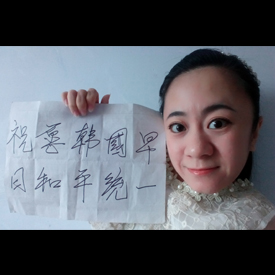 祝愿韩國早
日和平统一